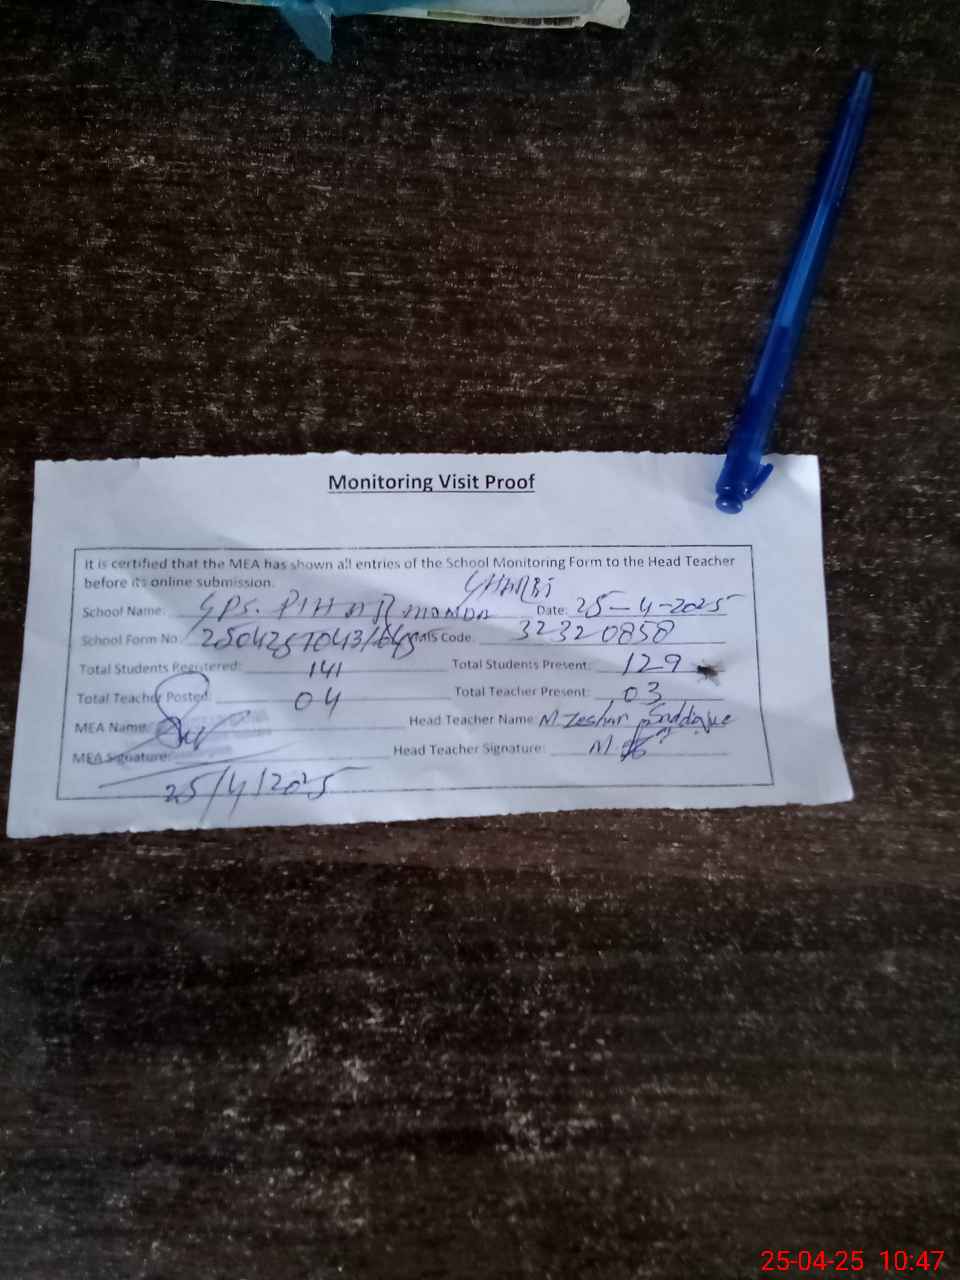 Monitoring Visit Proof
It is certified that the MEA has shown all entries of the School Monitoring Form to the Head Teacher
before its online submission.
GHARBI
School Name: GPS. Date: 25-4-2025
School Form No EMIS Code. 32320858
Total Students Registered: 141 Total Students Present: 129
Total Teacher Posted: 04 Total Teacher Present: 03
MEA Name: Head Teacher Name M. Zeshan
MEA Signature: Head Teacher Signature:
25/4/2025
25-04-25 10:47